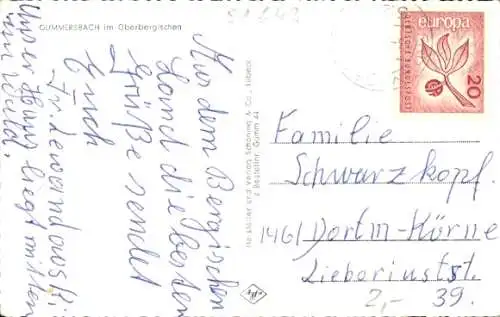 GUMMERSBACH im Oberbergischen
Aus dem Bergischen
Land die besten
Grüße sendet
Euch
Fr. Lewandowski.
Unser Haus liegt mitten
im Wald.
Hersteller und Verlag Schöning & Co., Lübeck
Bestellnr. Gumm 44
Agfa
europa
DEUTSCHE BUNDESPOST
20
Familie
Schwarzkopf.
46 Dortm-Körne
Lieboriusstr.
39.
2,-